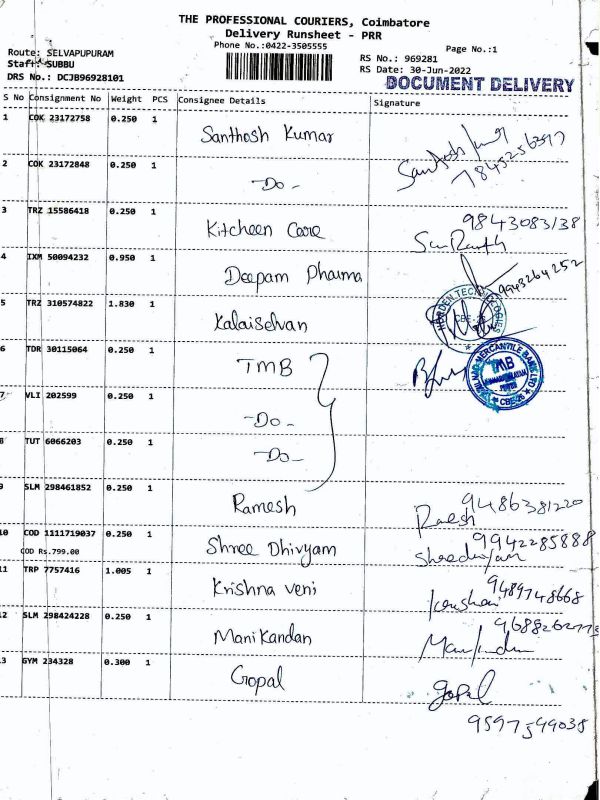 THE PROFESSIONAL COURIERS, Coimbatore
Delivery Runsheet - PRR
Phone No.:0422-3505555
Page No.:1
Route: SELVAPUPURAM
Staff: SUBBU
DRS No.: DCJB96928101
RS No.: 969281
RS Date: 30-Jun-2022
DOCUMENT DELIVERY
S No Consignment No Weight PCS Consignee Details Signature
1 COK 23172758 0.250 1 Santhosh Kumar
2 COK 23172848 0.250 1 -Do-
3 TRZ 15586418 0.250 1 Kitcheen Care 9843083138
4 IXM 50094232 0.950 1 Deepam Pharma 9943264252
5 TRZ 310574822 1.830 1 Kalaiselvan
6 TDR 30115064 0.250 1 TMB
TMB
7 VLI 202599 0.250 1 -Do-
8 TUT 6066203 0.250 1 -Do-
9 SLM 298461852 0.250 1 Ramesh 9486381220
10 COD 1111719037 0.250 1 Shree Dhivyam 9942285888
COD Rs.799.00
11 TRP 7757416 1.005 1 Krishna veni 9489748668
12 SLM 298424228 0.250 1 Manikandan
13 GYM 234328 0.300 1 Gopal gopal
9597549038